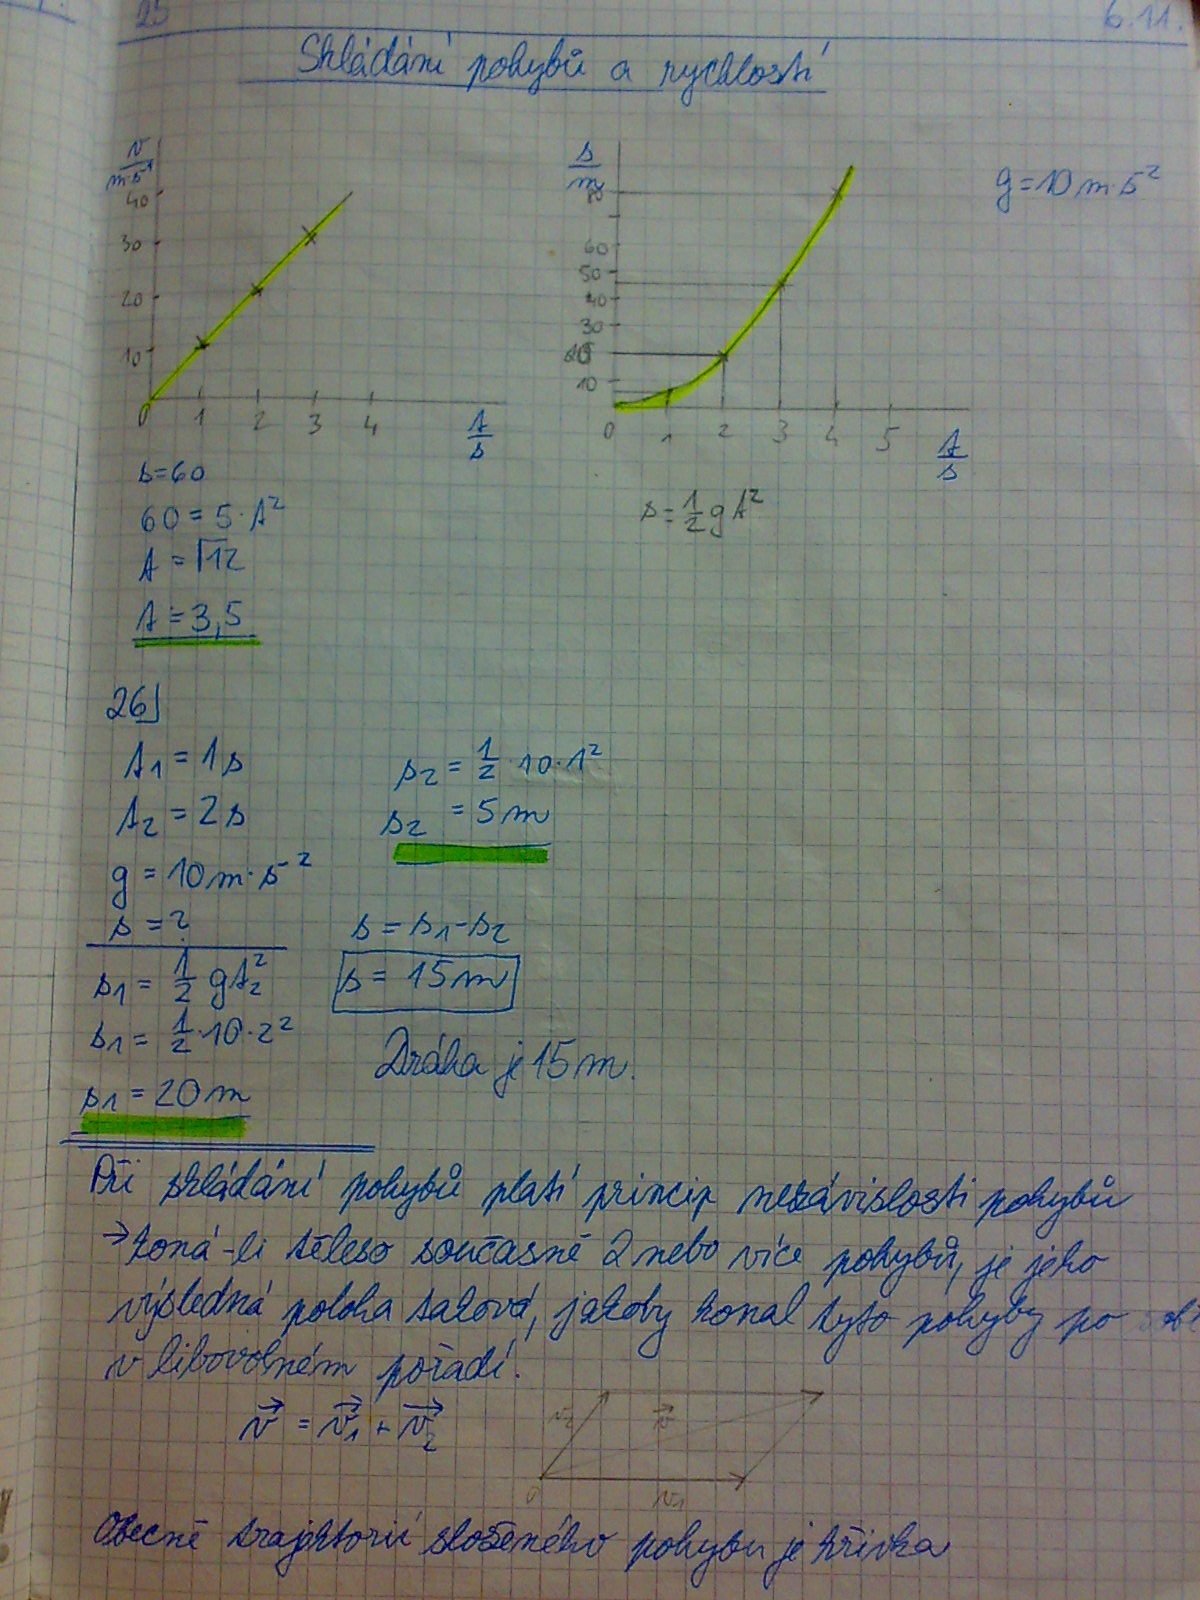 25 6.11.
Skládání pohybů a rychlostí
v s
m·s⁻¹ m g=10 m·s⁻²
40 80
30 60
20 50
10 40
30
10
0 1 2 3 4 t/s
0 1 2 3 4 5 t/s
s=60
60 = 5·t²
t = √12
t = 3,5
s = 1/2 g t²
26)
t₁ = 1s
t₂ = 2s
g = 10 m·s⁻²
s = ?
s₁ = 1/2 g t₂²
s₁ = 1/2·10·2²
s₁ = 20 m
s₂ = 1/2·10·1²
s₂ = 5 m
s = s₁-s₂
s = 15 m
Dráha je 15 m.
Při skládání pohybů platí princip nezávislosti pohybů
→ koná-li těleso současně 2 nebo více pohybů, je jeho
výsledná poloha taková, jakoby konal tyto pohyby po sobě
v libovolném pořadí.
v⃗ = v⃗₁ + v⃗₂
v₂ v⃗
0 v₁
Obecně trajektorií složeného pohybu je křivka